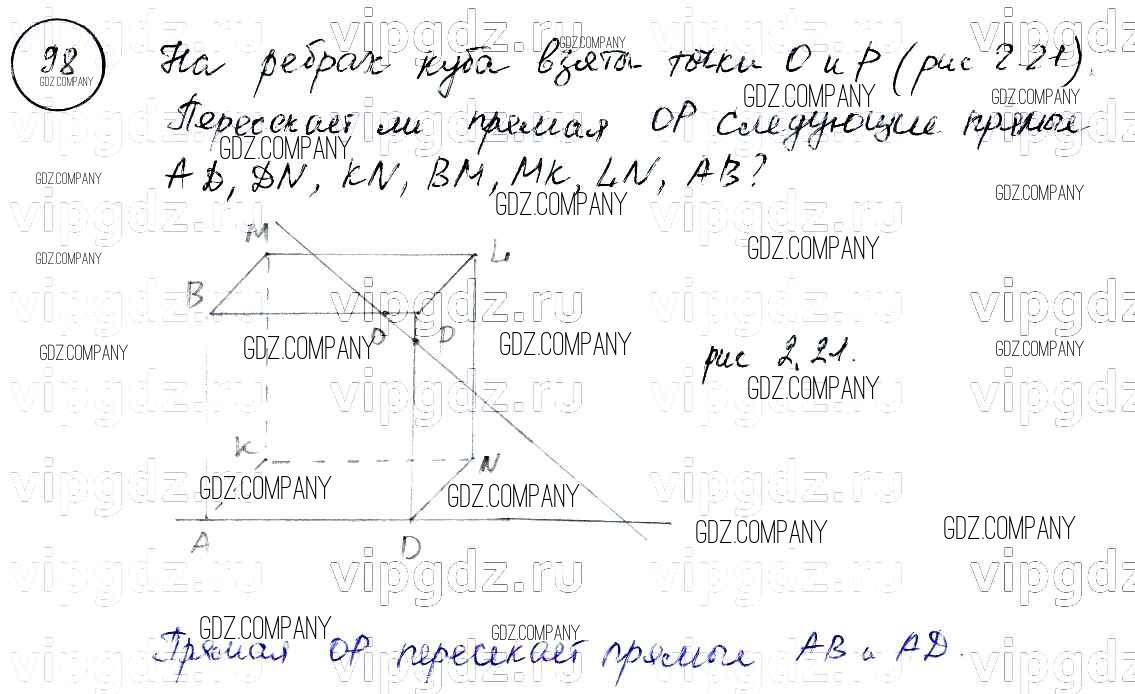 98 На ребрах куба взяты точки О и Р (рис 2.21).
Пересекает ли прямая ОР следующие прямые
AD, DN, KN, BM, MK, LN, AB?
M
L
B
O
P
рис 2.21.
K
N
A
D
Прямая ОР пересекает прямые АВ и AD.
GDZ.COMPANY
vipgdz.ru